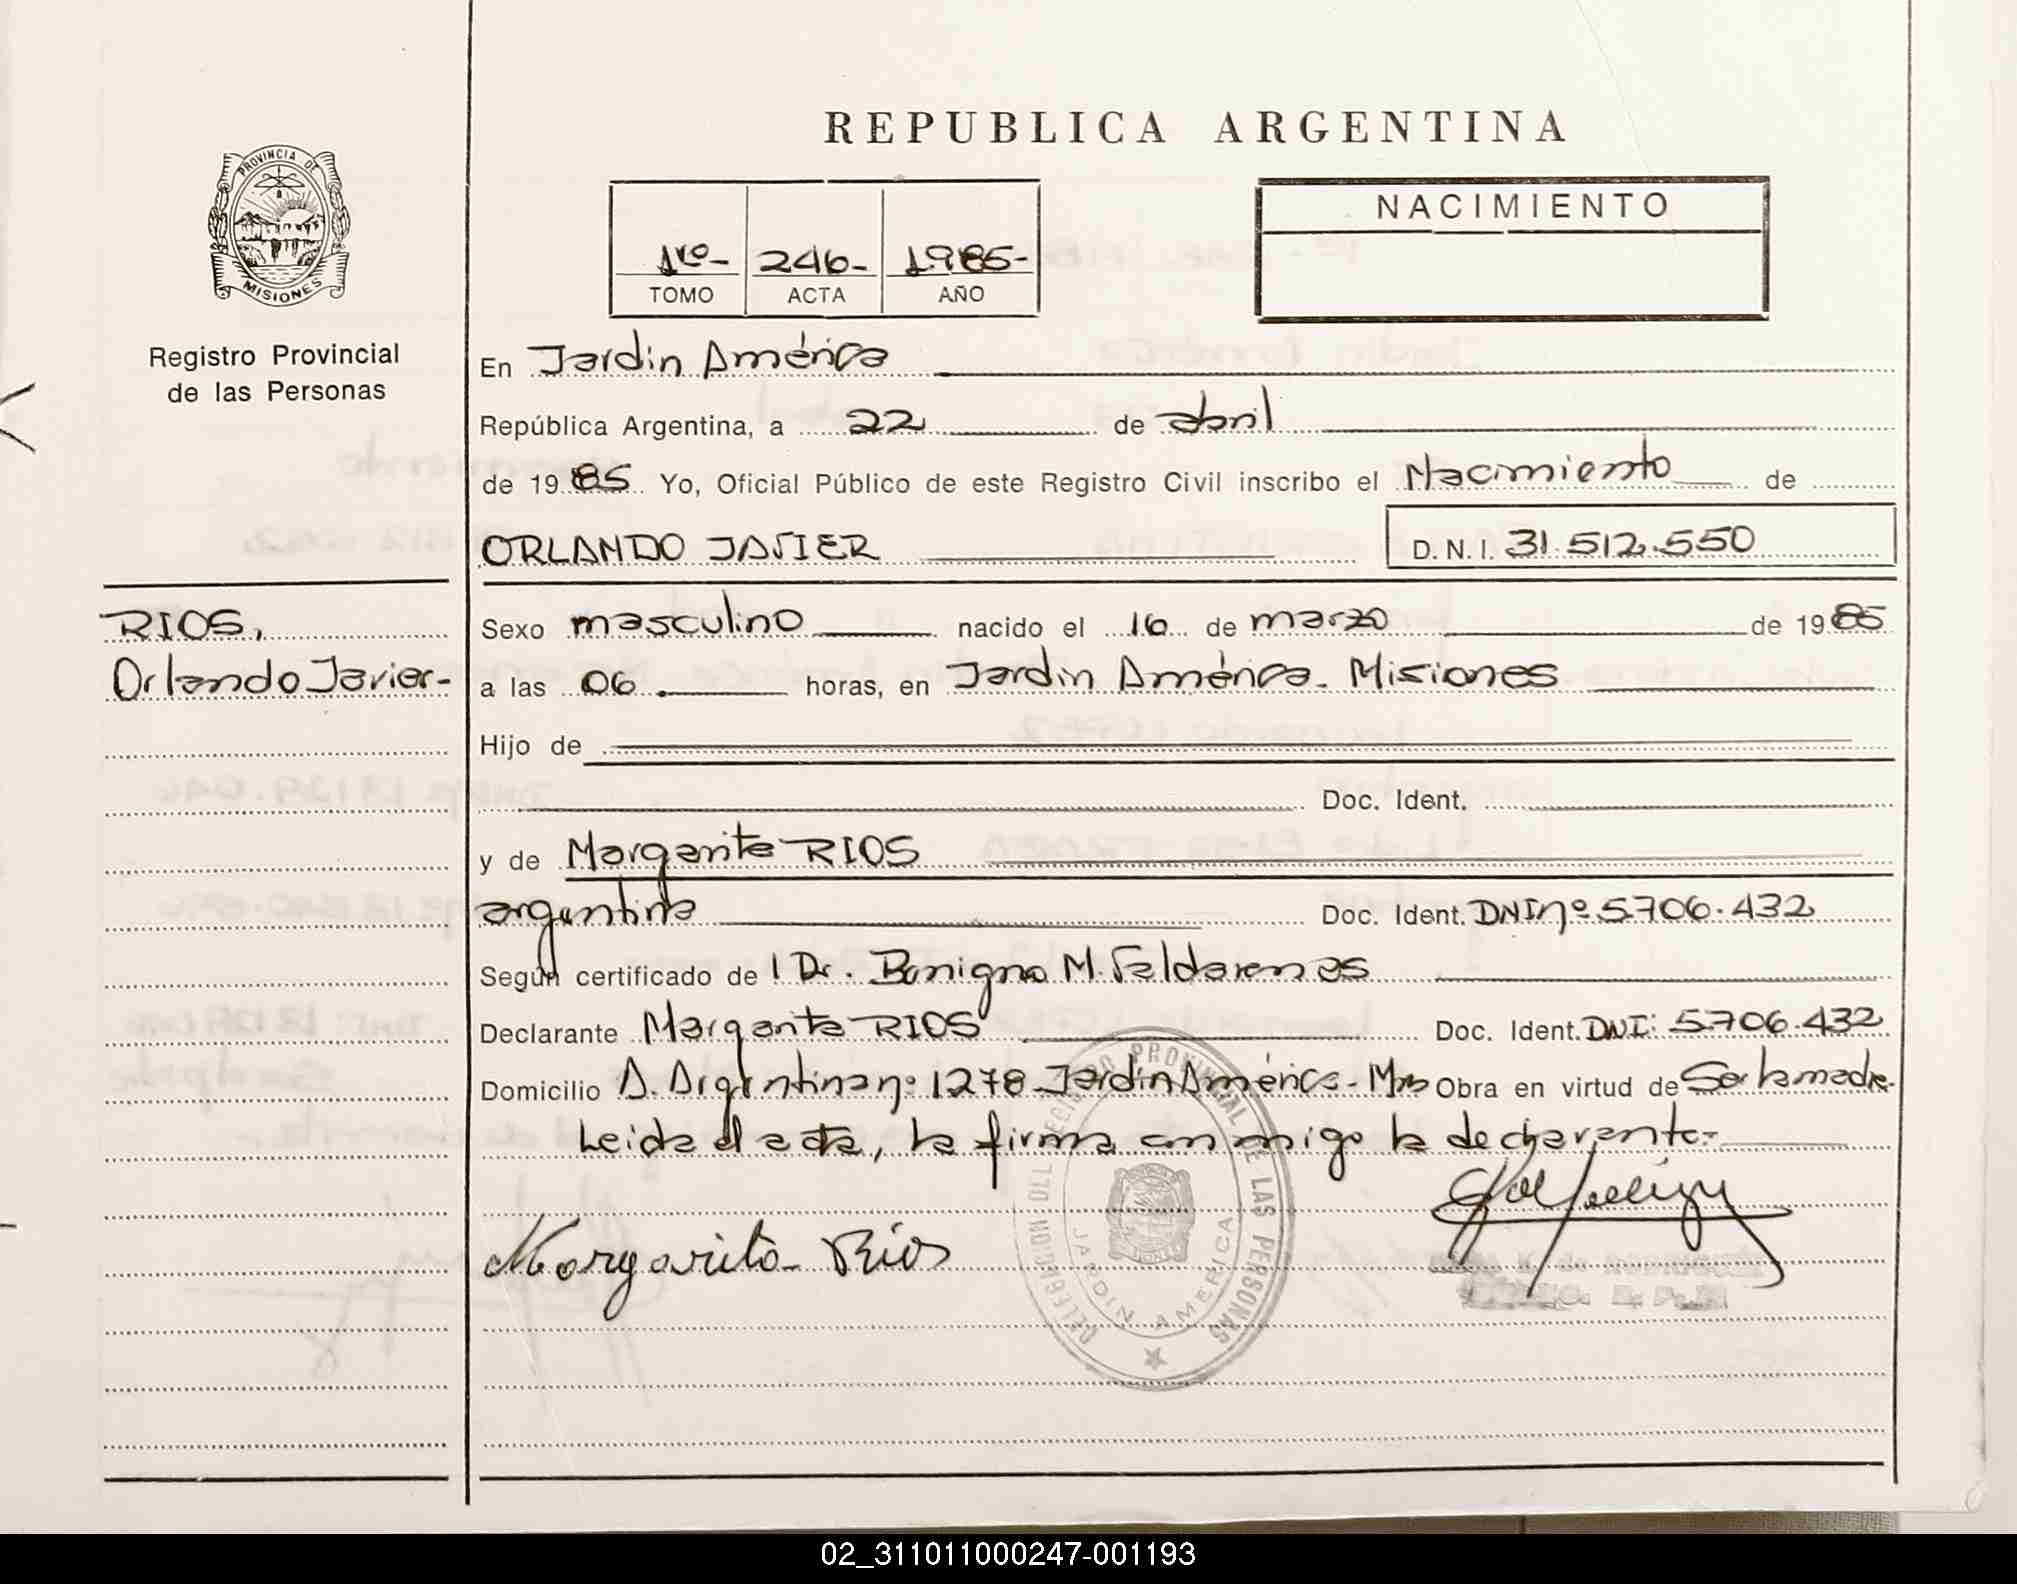 REPUBLICA ARGENTINA
PROVINCIA DE
MISIONES
Registro Provincial
de las Personas
1ro- 246- 1985-
TOMO ACTA AÑO
NACIMIENTO
En Jardin América
República Argentina, a 22 de abril
de 1985 Yo, Oficial Público de este Registro Civil inscribo el Nacimiento de
ORLANDO JAVIER D.N.I. 31.512.550
RIOS,
Orlando Javier-
Sexo masculino nacido el 16 de marzo de 1985
a las 06. horas, en Jardin América. Misiones
Hijo de
Doc. Ident.
y de Margarita RIOS
argentina Doc. Ident. DNI nº 5706.432
Según certificado de l Dr. Benigno M.
Declarante Margarita RIOS Doc. Ident. DNI: 5706.432
Domicilio A. Argentina nº 1278 Jardin América- Mnes Obra en virtud de Ser la madre.
Leida el acta, la firma conmigo la declarante.-
Margarita Rios
DELEGACION DEL REGISTRO PROVINCIAL DE LAS PERSONAS
JARDIN AMERICA
de RODRIGUEZ
02_311011000247-001193